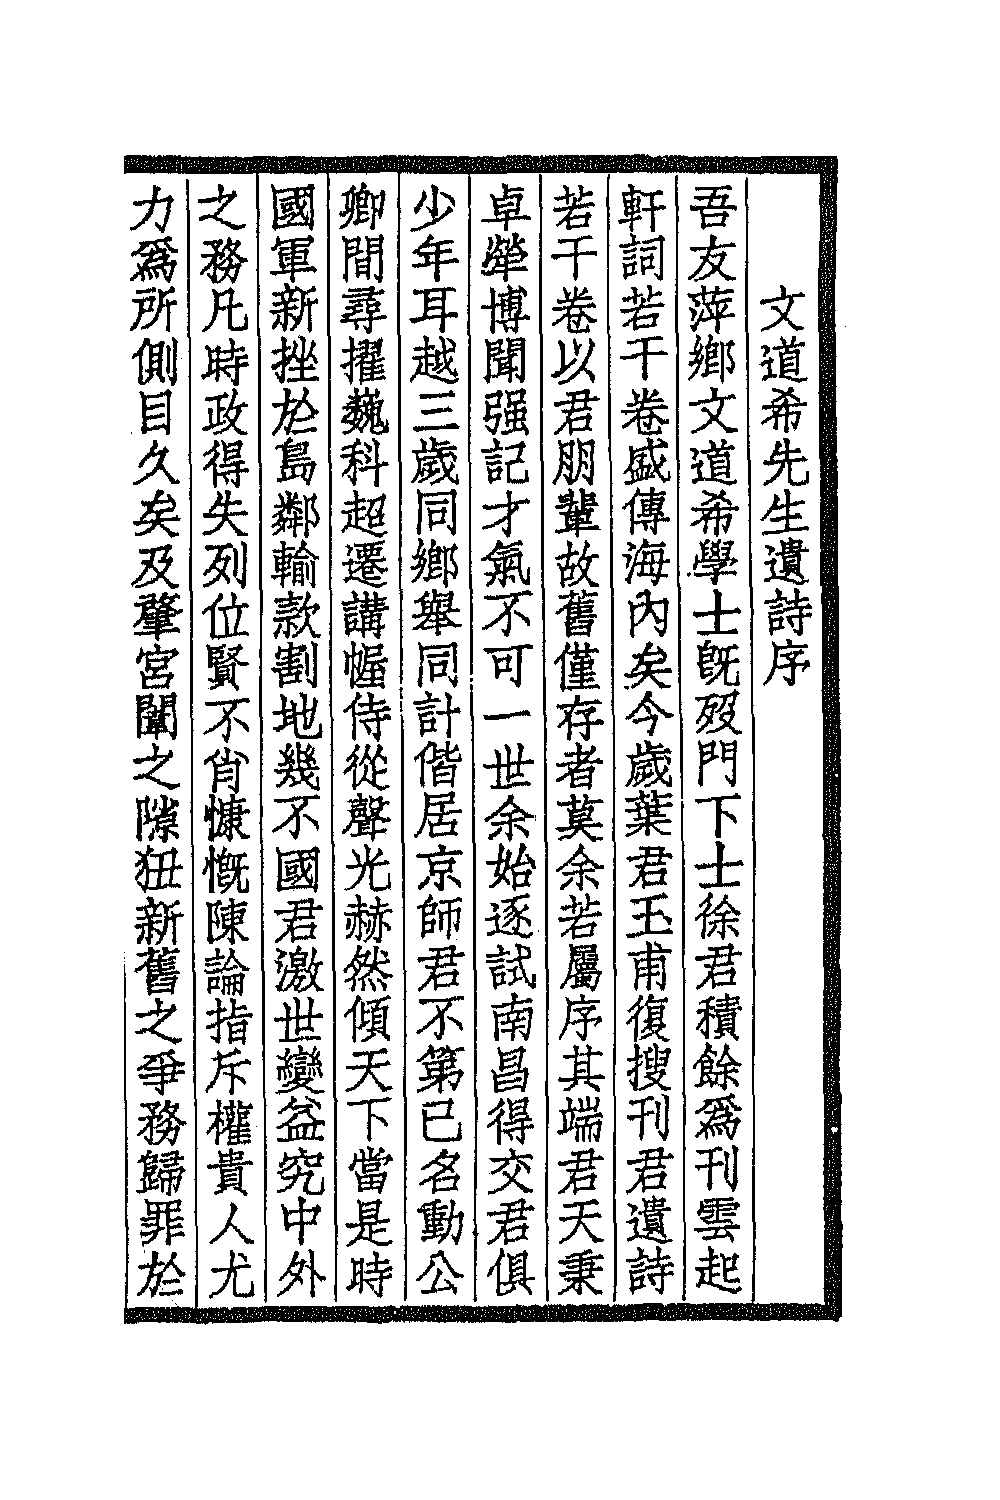 文道希先生遺詩序
吾友萍鄉文道希學士既歿門下士徐君積餘爲刊雲起
軒詞若干卷盛傳海內矣今歲葉君玉甫復搜刊君遺詩
若干卷以君朋輩故舊僅存者莫余若屬序其端君天秉
卓犖博聞强記才氣不可一世余始逐試南昌得交君俱
少年耳越三歲同鄉舉同計偕居京師君不第已名動公
卿間尋擢巍科超遷講幄侍從聲光赫然傾天下當是時
國軍新挫於島鄰輸款割地幾不國君激世變益究中外
之務凡時政得失列位賢不肖慷慨陳論指斥權貴人尤
力爲所側目久矣及肇宮闈之隙狃新舊之爭務歸罪於